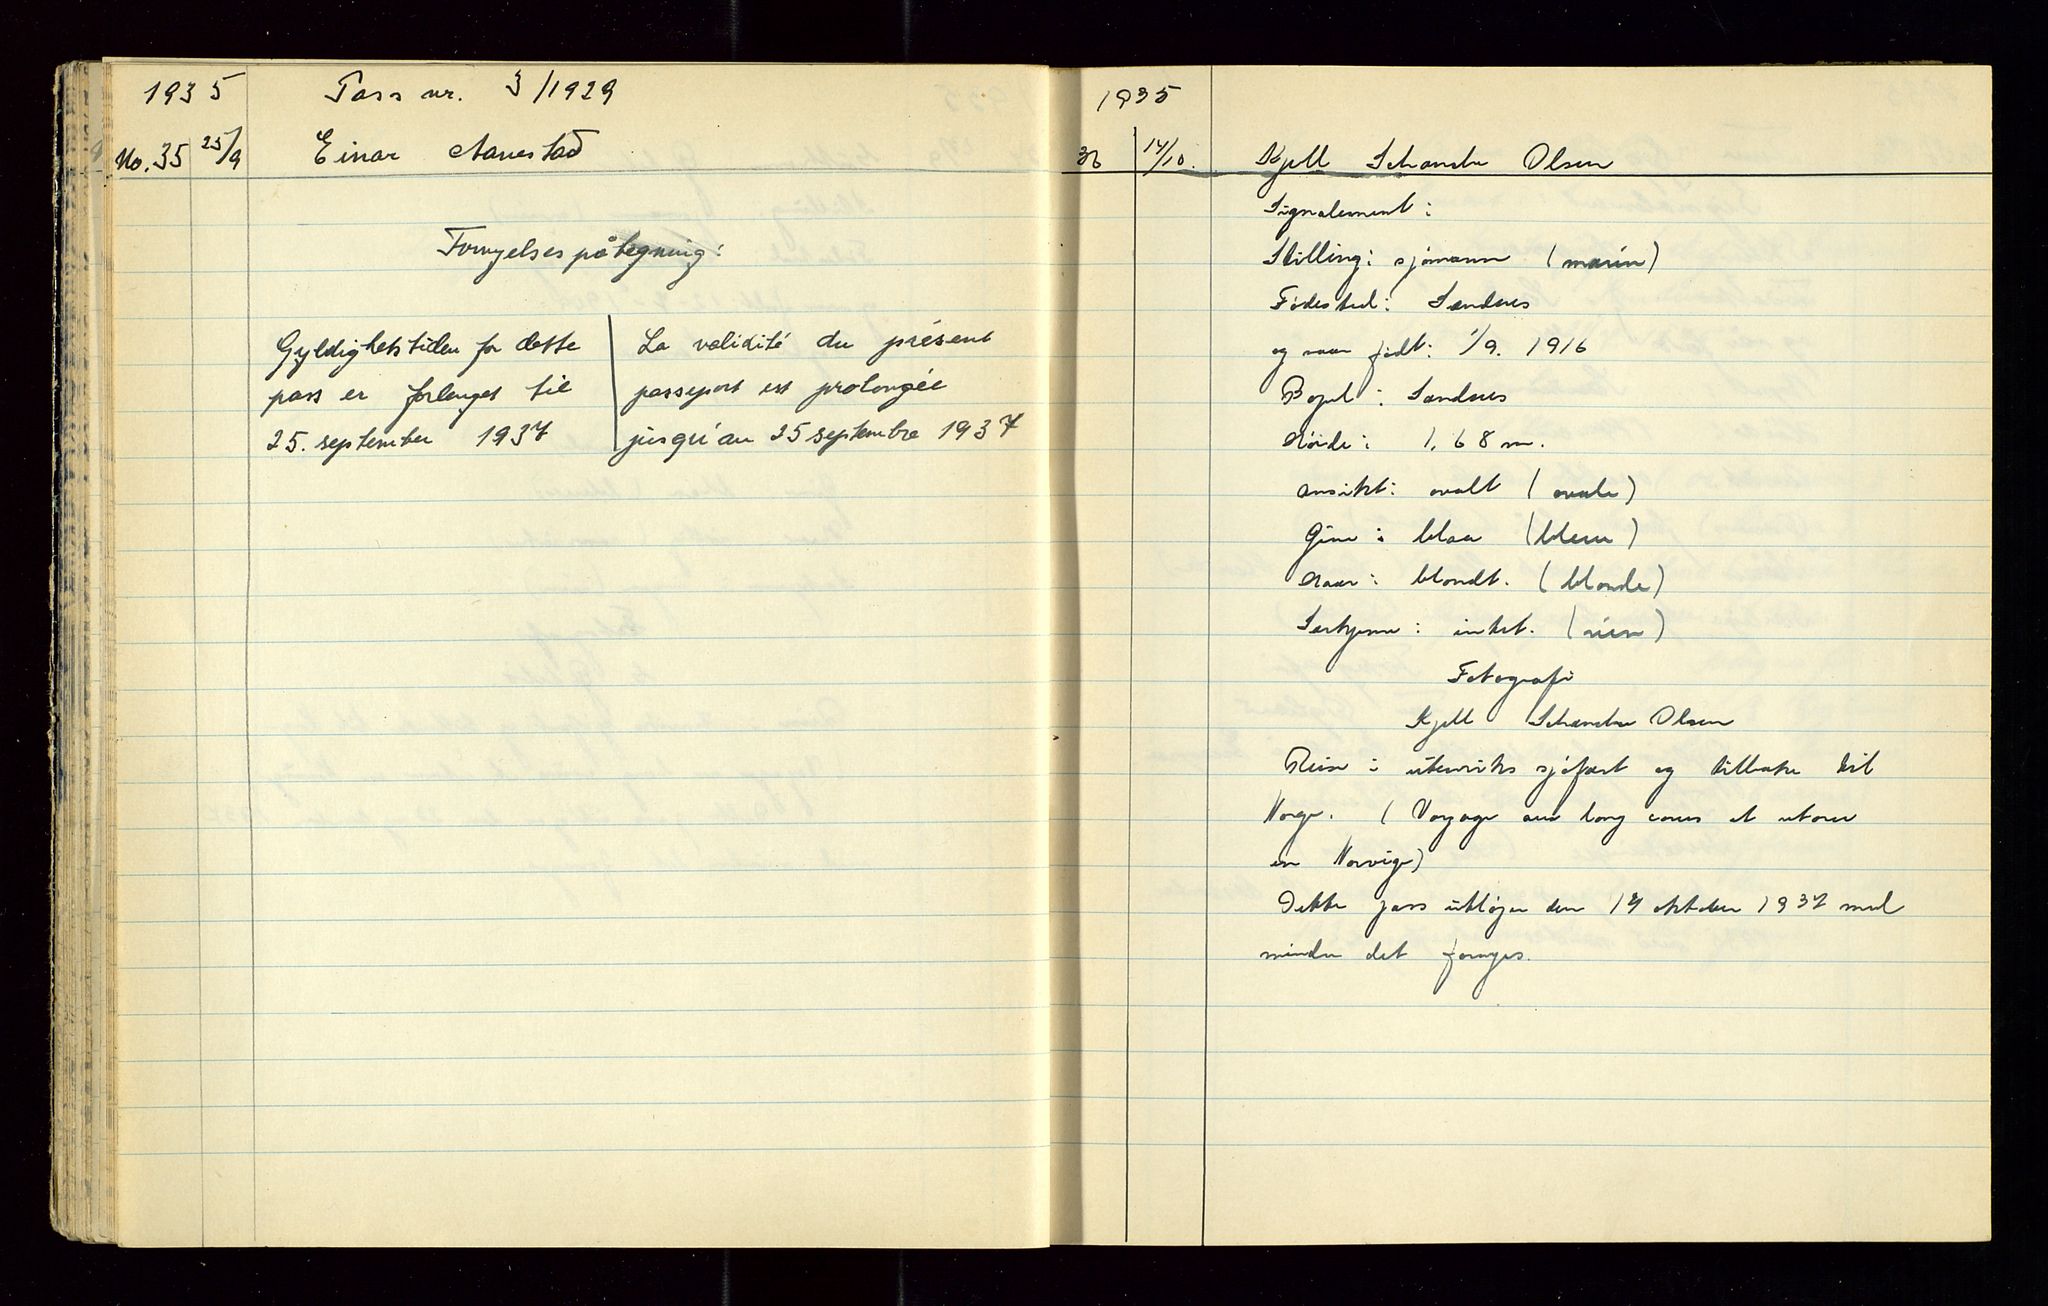 1935 Pass nr. 3/1929
No. 35 25/9 Einar Aanestad
Fornyelsespåtegning:
Gyldighetstiden for dette
pass er forlenget til
25. september 1937
La validité du présent
passeport est prolongée
jusqu'au 25 septembre 1937
1935
36 14/10. Kjell Schanche Olsen
Signalement:
Stilling: sjømann (marin)
Fødested: Sandnes
og naar født: 1/9. 1916
Bopel: Sandnes
Høide: 1,68 m.
ansikt: ovalt (ovale)
Øine: blaa (bleue)
Haar: blondt. (blonde)
Særkjenne: intet. (rien)
Fotografi
Kjell Schanche Olsen
Reise i utenriks sjøfart og tilbake til
Norge. (Voyage au long cours et retour
en Norvège)
Dette pass utløper den 14 oktober 1937 med
mindre det fornyes.